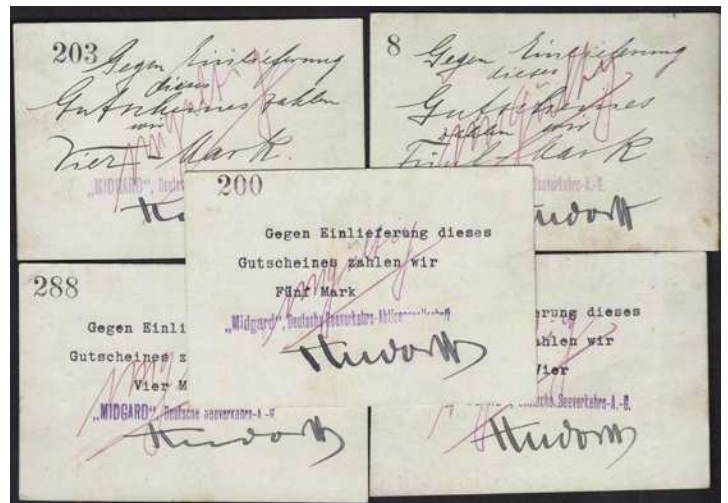 203
Gegen Einlieferung
dieses
Gutscheines zahlen
wir
Vier Mark.
"MIDGARD", Deutsche
8
Gegen Einlieferung
dieses
Gutscheines
zahlen wir
Mark
Seeverkehrs-A.-G.
200
Gegen Einlieferung dieses
Gutscheines zahlen wir
Fünf Mark
ungültig
"Midgard", Deutsche Seeverkehrs-Aktiengesellschaft
288
Gegen Einli
Gutscheines z
Vier M
"MIDGARD", Deutsche Seeverkehrs-A.-G.
erung dieses
ahlen wir
Vier
Deutsche Seeverkehrs-A.-G.